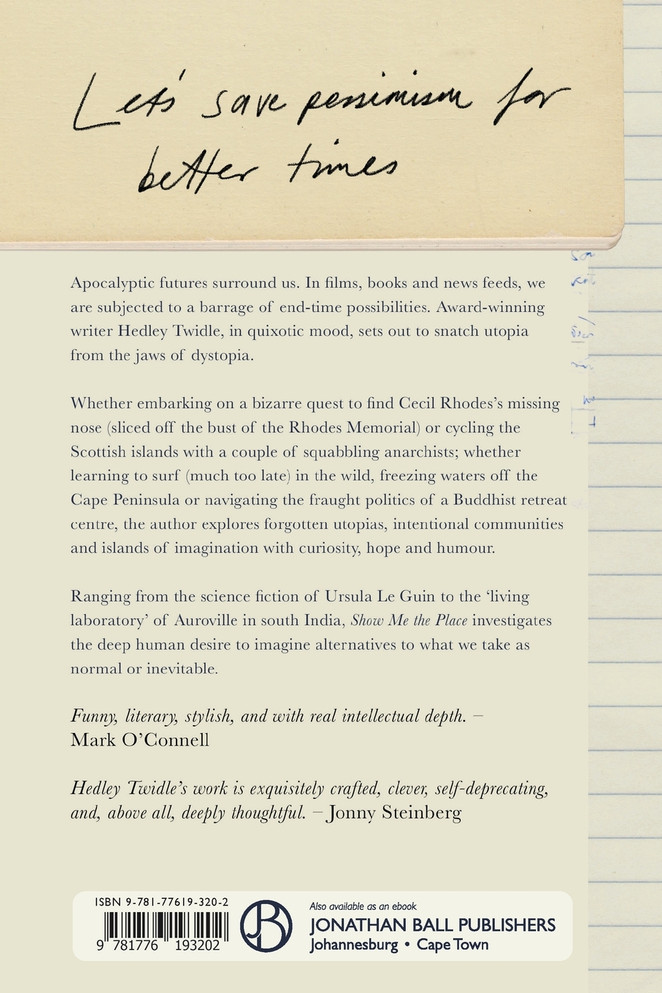 Let's save pessimism for
better times
Apocalyptic futures surround us. In films, books and news feeds, we
are subjected to a barrage of end-time possibilities. Award-winning
writer Hedley Twidle, in quixotic mood, sets out to snatch utopia
from the jaws of dystopia.
Whether embarking on a bizarre quest to find Cecil Rhodes’s missing
nose (sliced off the bust of the Rhodes Memorial) or cycling the
Scottish islands with a couple of squabbling anarchists; whether
learning to surf (much too late) in the wild, freezing waters off the
Cape Peninsula or navigating the fraught politics of a Buddhist retreat
centre, the author explores forgotten utopias, intentional communities
and islands of imagination with curiosity, hope and humour.
Ranging from the science fiction of Ursula Le Guin to the ‘living
laboratory’ of Auroville in south India, Show Me the Place investigates
the deep human desire to imagine alternatives to what we take as
normal or inevitable.
Funny, literary, stylish, and with real intellectual depth. –
Mark O’Connell
Hedley Twidle’s work is exquisitely crafted, clever, self-deprecating,
and, above all, deeply thoughtful. – Jonny Steinberg
ISBN 9-781-77619-320-2
9 781776 193202
JB
Also available as an ebook
JONATHAN BALL PUBLISHERS
Johannesburg • Cape Town